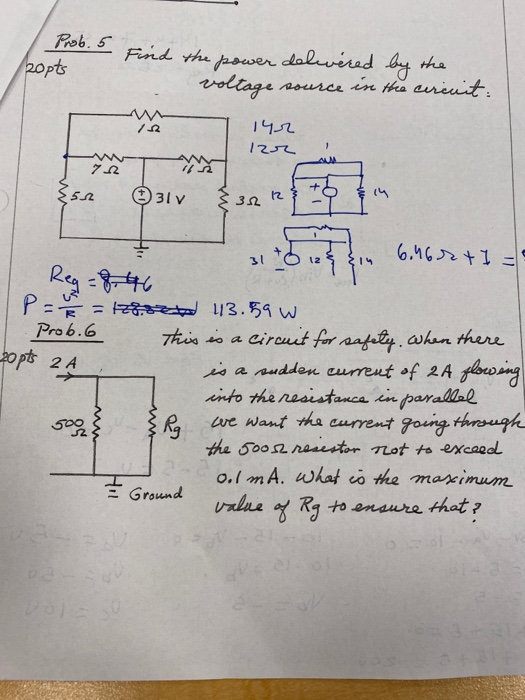 Prob. 5
20pts
Find the power delivered by the
voltage source in the circuit:
1Ω
14Ω
12Ω
7Ω
11Ω
5Ω
31 V
3Ω
1
12
14
1
31
12
14
6.46Ω + 1 =
Req = 8.46
P = V²/R = 113.59 W
Prob. 6
20 pts
This is a circuit for safety. When there
is a sudden current of 2A flowing
into the resistance in parallel
we want the current going through
the 500Ω resistor not to exceed
0.1 mA. What is the maximum
value of Rg to ensure that?
2 A
500
Ω
Rg
Ground